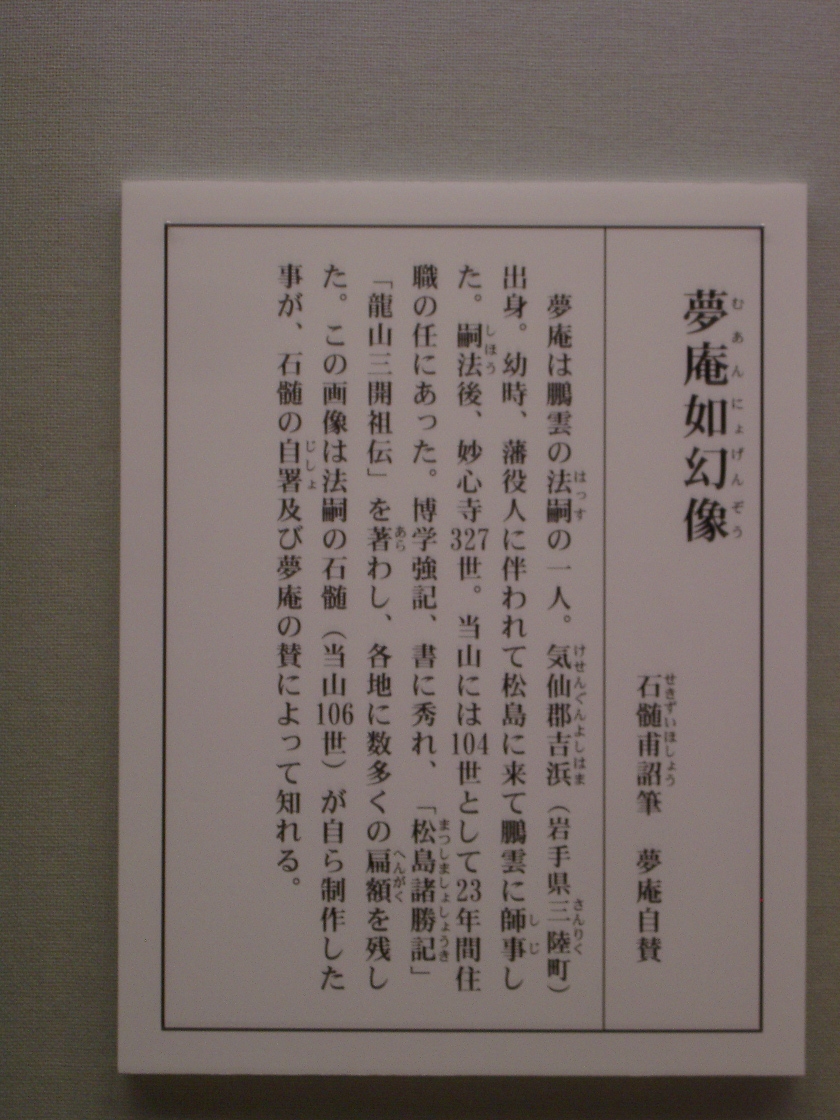 夢庵如幻像
石髄甫詔筆　夢庵自賛
夢庵は鵬雲の法嗣の一人。気仙郡吉浜（岩手県三陸町）
出身。幼時、藩役人に伴われて松島に来て鵬雲に師事し
た。嗣法後、妙心寺327世。当山には104世として23年間住
職の任にあった。博学強記、書に秀れ、「松島諸勝記」
「龍山三開祖伝」を著わし、各地に数多くの扁額を残し
た。この画像は法嗣の石髄（当山106世）が自ら制作した
事が、石髄の自署及び夢庵の賛によって知れる。